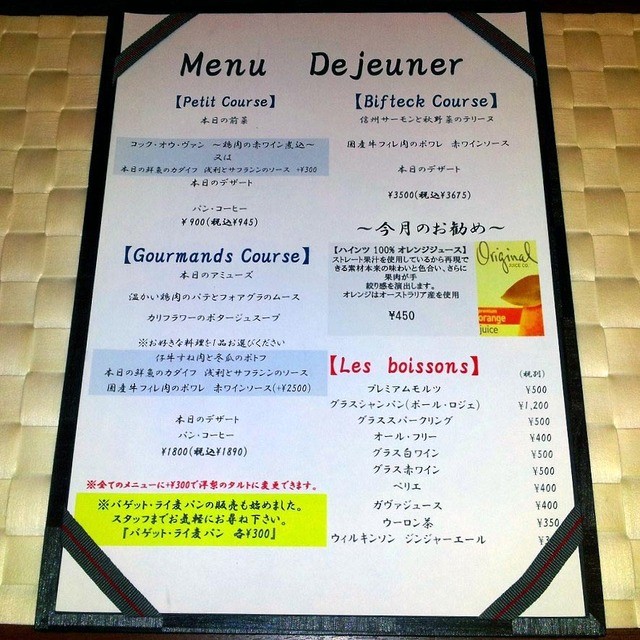 Menu Dejeuner
【Petit Course】
本日の前菜
コック・オウ・ヴァン ～鶏肉の赤ワイン煮込～
又は
本日の鮮魚のカダイフ 浅利とサフランンのソース +¥300
本日のデザート
パン・コーヒー
¥900(税込¥945)
【Gourmands Course】
本日のアミューズ
温かい鶏肉のパテとフォアグラのムース
カリフラワーのポタージュスープ
※お好きな料理を1品お選びください
仔牛すね肉と冬瓜のポトフ
本日の鮮魚のカダイフ 浅利とサフランンのソース
国産牛フィレ肉のポワレ 赤ワインソース(+¥2500)
本日のデザート
パン・コーヒー
¥1800(税込¥1890)
※全てのメニューに+¥300で洋梨のタルトに変更できます。
※バゲット・ライ麦パンの販売も始めました。
スタッフまでお気軽にお尋ね下さい。
『バゲット・ライ麦パン 各¥300』
【Bifteck Course】
信州サーモンと秋野菜のテリーヌ
国産牛フィレ肉のポワレ 赤ワインソース
本日のデザート
¥3500(税込¥3675)
～今月のお勧め～
【ハインツ 100% オレンジジュース】
ストレート果汁を使用しているから再現で
きる素材本来の味わいと色合い、さらに
果肉が手
絞り感を演出します。
オレンジはオーストラリア産を使用
¥450
Original
JUICE CO.
premium
orange
juice
【Les boissons】
(税別)
プレミアムモルツ ¥500
グラスシャンパン(ポール・ロジェ) ¥1,200
グラススパークリング ¥500
オール・フリー ¥400
グラス白ワイン ¥500
グラス赤ワイン ¥500
ペリエ ¥400
ガヴァジュース ¥400
ウーロン茶 ¥350
ウィルキンソン ジンジャーエール